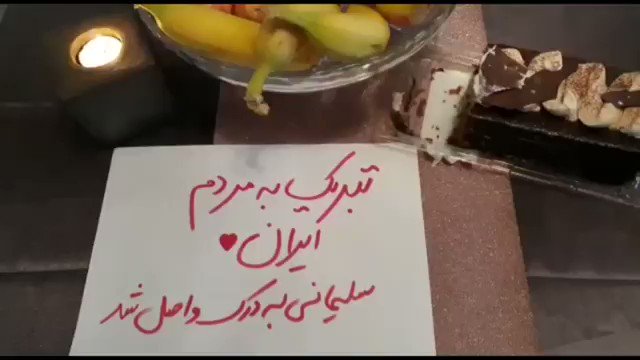 تبریک به مردم
ایران ♥
سلیمانی به درک واصل شد